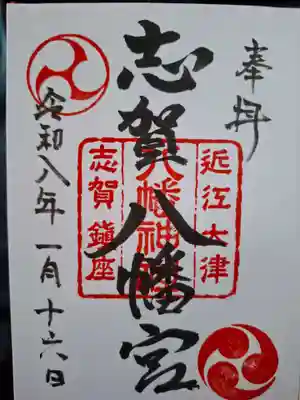 奉拝
志賀八幡宮
近江大津
八幡神社
志賀鎮座
令和八年一月十六日